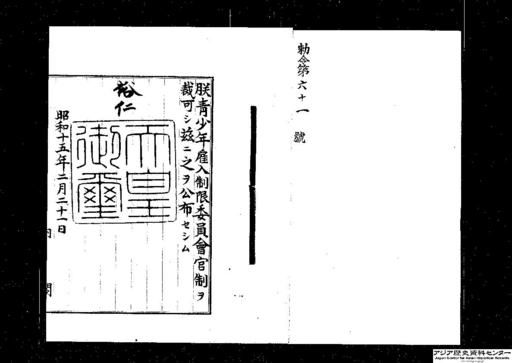 勅令第六十一號
朕青少年雇入制限委員會官制ヲ
裁可シ茲ニ之ヲ公布セシム
裕仁
天皇御璽
昭和十五年二月二十一日
内閣
アジア歴史資料センター
Japan Center for Asian Historical Records